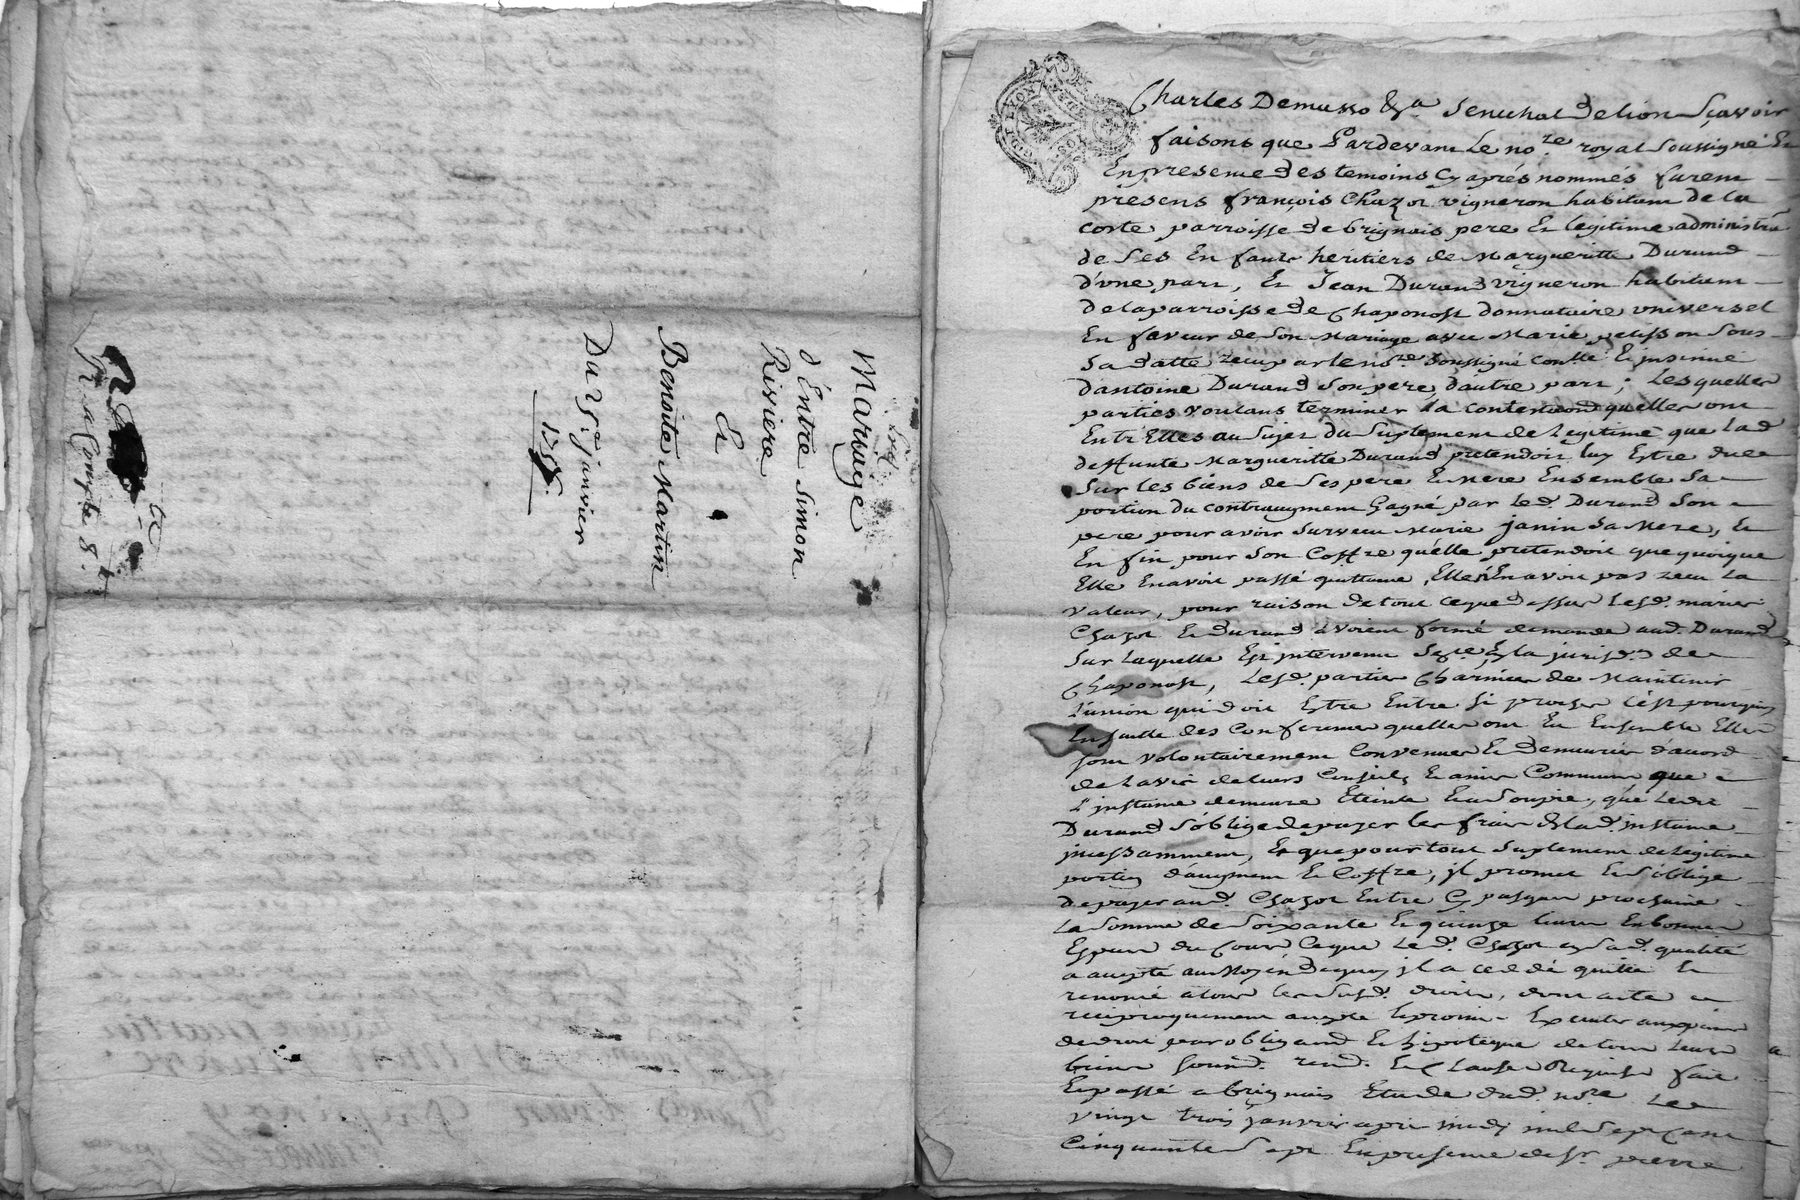 Mariage
d'Entre Simon
Riviere
Et
Benoite Martin
Du 25e janvier
1757.
de Compte 8.
Charles Demasso &a Senechal de lion Sçavoir
faisons que Pardevant Le nore royal soussigné Et
En presence des temoins Cy aprés nommés furent
presens françois Chazot vigneron habitant de la
coste parroisse de brignais pere Et legitime administra
de Ses Enfants heritiers de Margueritte Durand
d'une part, Et Jean Durand vigneron habitant
de la parroisse de Chaponost donnataire universel
En faveur de son Mariage avec Marie petisson sous
Sa datte receu par le nore soussigné contle Et insinué
d'antoine Durand Son pere, d'autre part; Lesquelles
parties voulans terminer la contention quelles ont
Entr'Elles au Sujet du Suplement de legitime que lad
deffunte Margueritte Durand pretendoit luy Estre due
Sur les biens de Ses pere Et Mere Ensemble Sa
portion du contraugment Gagné par led. Durand Son
pere pour avoir Survecu Marie janin Sa Mere, Et
En fin pour Son Coffre qu'elle pretendoit que quoique
Elle En avoit passé quittance, Elle n'En avoit pas receu La
valeur, pour raison de tout ce que dessus Lesd. mariés
Chazot Et Durand avoient formé demande aud. Durand
Sur laquelle Est intervenu Sence En la jurisdon de
Chaponost, Lesd. parties Charmées de Maintenir
l'union qui doit Estre Entre Si proches C'est pourquoy
En suitte des Conferences quelles ont Eu Ensemble Elles
sont volontairement Convenues Et Demeurées d'accord
de l'avis de leurs Conseils Et amis Communs que
L'instance demeure Eteinte Et assoupie, que Ledit
Durand S'oblige de payer les frais de lad. instance
incessamment, Et que pour tout Suplement de legitime
portion d'augment Et Coffre, il promet Et S'oblige
de payer aud. Chazot Entre Cy pasques prochaine
La Somme de Soixante Et quinze livres En bonnes
Especes du Cours Ce que Le d. Chazot En Sad. qualité
a accepté au Moyen De quoy il a ceddé quitté Et
renoncé a tous les Susd. droits, dont acte
reciproquement accepté Et promis Executer aux peines
de droit par obligaon Et hipoteque de tous leurs
biens soumd. renond. Et Clauses Requises fait
Et passé a brignais Etude dud. nore Le
vingt trois janvier apres midy mil Sept Cent
Cinquante Sept En presence de Sr. pierre